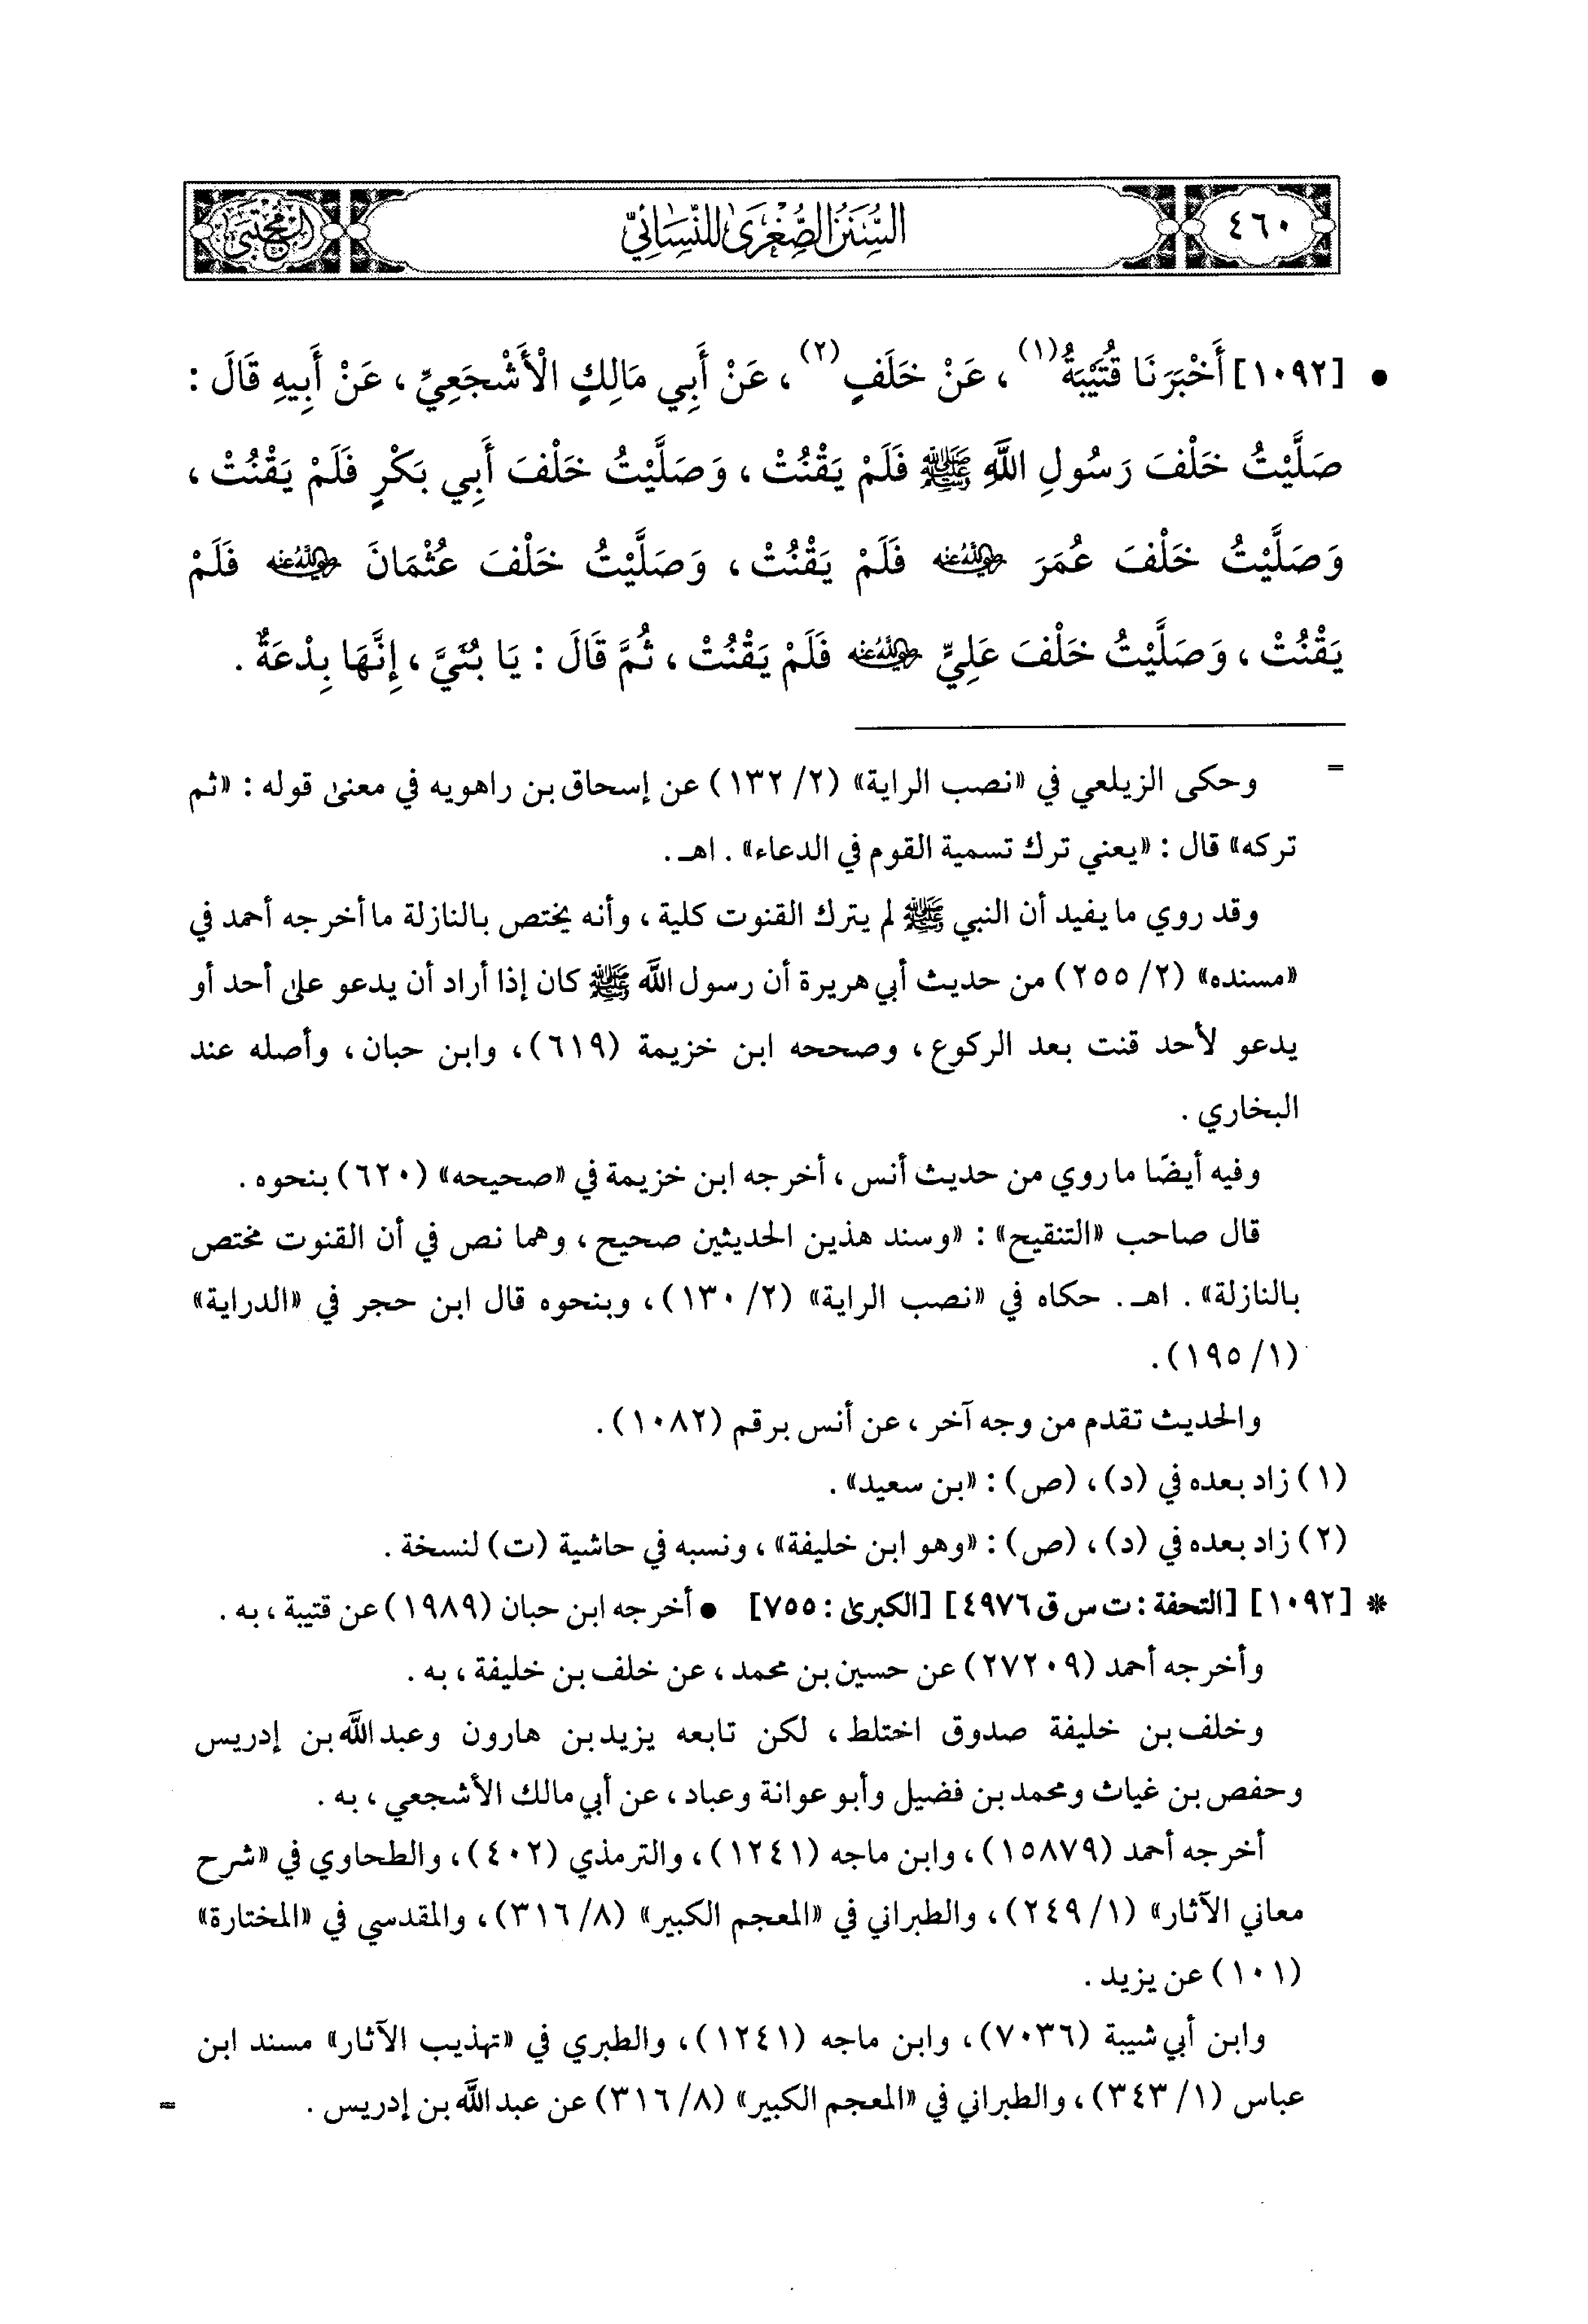 ٤٦٠
السُّنَنُ الصُّغْرَىٰ لِلنَّسَائِيِّ
المجتبى
• [١٠٩٢] أَخْبَرَنَا قُتَيْبَةُ(١)، عَنْ خَلَفٍ(٢)، عَنْ أَبِي مَالِكٍ الْأَشْجَعِيِّ، عَنْ أَبِيهِ قَالَ :
صَلَّيْتُ خَلْفَ رَسُولِ اللَّهِ ﷺ فَلَمْ يَقْنُتْ، وَصَلَّيْتُ خَلْفَ أَبِي بَكْرٍ فَلَمْ يَقْنُتْ،
وَصَلَّيْتُ خَلْفَ عُمَرَ رضي الله عنه فَلَمْ يَقْنُتْ، وَصَلَّيْتُ خَلْفَ عُثْمَانَ رضي الله عنه فَلَمْ
يَقْنُتْ، وَصَلَّيْتُ خَلْفَ عَلِيٍّ رضي الله عنه فَلَمْ يَقْنُتْ، ثُمَّ قَالَ : يَا بُنَيَّ، إِنَّهَا بِدْعَةٌ.
= وحكى الزيلعي في «نصب الراية» (٢/ ١٣٢) عن إسحاق بن راهويه في معنىٰ قوله : «ثم
تركه» قال : «يعني ترك تسمية القوم في الدعاء». اهـ.
وقد روي ما يفيد أن النبي ﷺ لم يترك القنوت كلية، وأنه يختص بالنازلة ما أخرجه أحمد في
«مسنده» (٢/ ٢٥٥) من حديث أبي هريرة أن رسول اللَّه ﷺ كان إذا أراد أن يدعو علىٰ أحد أو
يدعو لأحد قنت بعد الركوع، وصححه ابن خزيمة (٦١٩)، وابن حبان، وأصله عند
البخاري.
وفيه أيضًا ما روي من حديث أنس، أخرجه ابن خزيمة في «صحيحه» (٦٢٠) بنحوه.
قال صاحب «التنقيح» : «وسند هذين الحديثين صحيح، وهما نص في أن القنوت مختص
بالنازلة». اهـ. حكاه في «نصب الراية» (٢/ ١٣٠)، وبنحوه قال ابن حجر في «الدراية»
(١/ ١٩٥).
والحديث تقدم من وجه آخر، عن أنس برقم (١٠٨٢).
(١) زاد بعده في (د)، (ص) : «بن سعيد».
(٢) زاد بعده في (د)، (ص) : «وهو ابن خليفة»، ونسبه في حاشية (ت) لنسخة.
* [١٠٩٢] [التحفة : ت س ق ٤٩٧٦] [الكبرىٰ : ٧٥٥] • أخرجه ابن حبان (١٩٨٩) عن قتيبة، به.
وأخرجه أحمد (٢٧٢٠٩) عن حسين بن محمد، عن خلف بن خليفة، به.
وخلف بن خليفة صدوق اختلط، لكن تابعه يزيد بن هارون وعبد اللَّه بن إدريس
وحفص بن غياث ومحمد بن فضيل وأبو عوانة وعباد، عن أبي مالك الأشجعي، به.
أخرجه أحمد (١٥٨٧٩)، وابن ماجه (١٢٤١)، والترمذي (٤٠٢)، والطحاوي في «شرح
معاني الآثار» (١/ ٢٤٩)، والطبراني في «المعجم الكبير» (٨/ ٣١٦)، والمقدسي في «المختارة»
(١٠١) عن يزيد.
وابن أبي شيبة (٧٠٣٦)، وابن ماجه (١٢٤١)، والطبري في «تهذيب الآثار» مسند ابن
عباس (١/ ٣٤٣)، والطبراني في «المعجم الكبير» (٨/ ٣١٦) عن عبد اللَّه بن إدريس. =